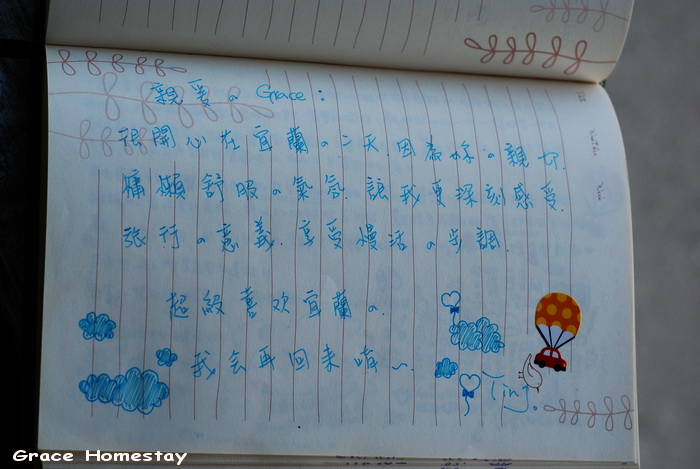 親愛の Grace:
很開心在宜蘭の二天.因為妳の親切.
慵懶舒服の氣氛.讓我更深刻感受.
旅行の意義.享受慢活の步調.
超級喜欢宜蘭の.
我会再回來唷~.
Ting.
Grace Homestay